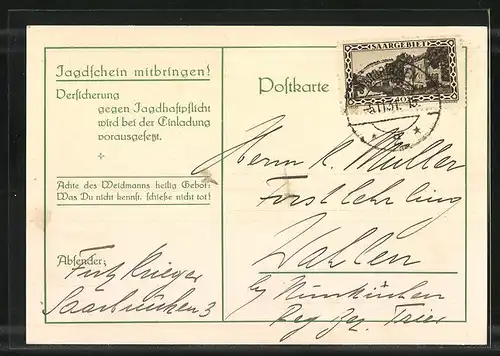 Jagdschein mitbringen!
Versicherung
gegen Jagdhaftpflicht
wird bei der Einladung
vorausgesetzt.
Achte des Weidmanns heilig Gebot:
Was Du nicht kennst, schieße nicht tot!
Absender:
Fritz Krieger
Saarbrücken 3
Postkarte
SAARGEBIET
40
Herrn K. Müller
Forstlehrling
Wahlen
bei Nunkirchen
Reg Bez. Trier